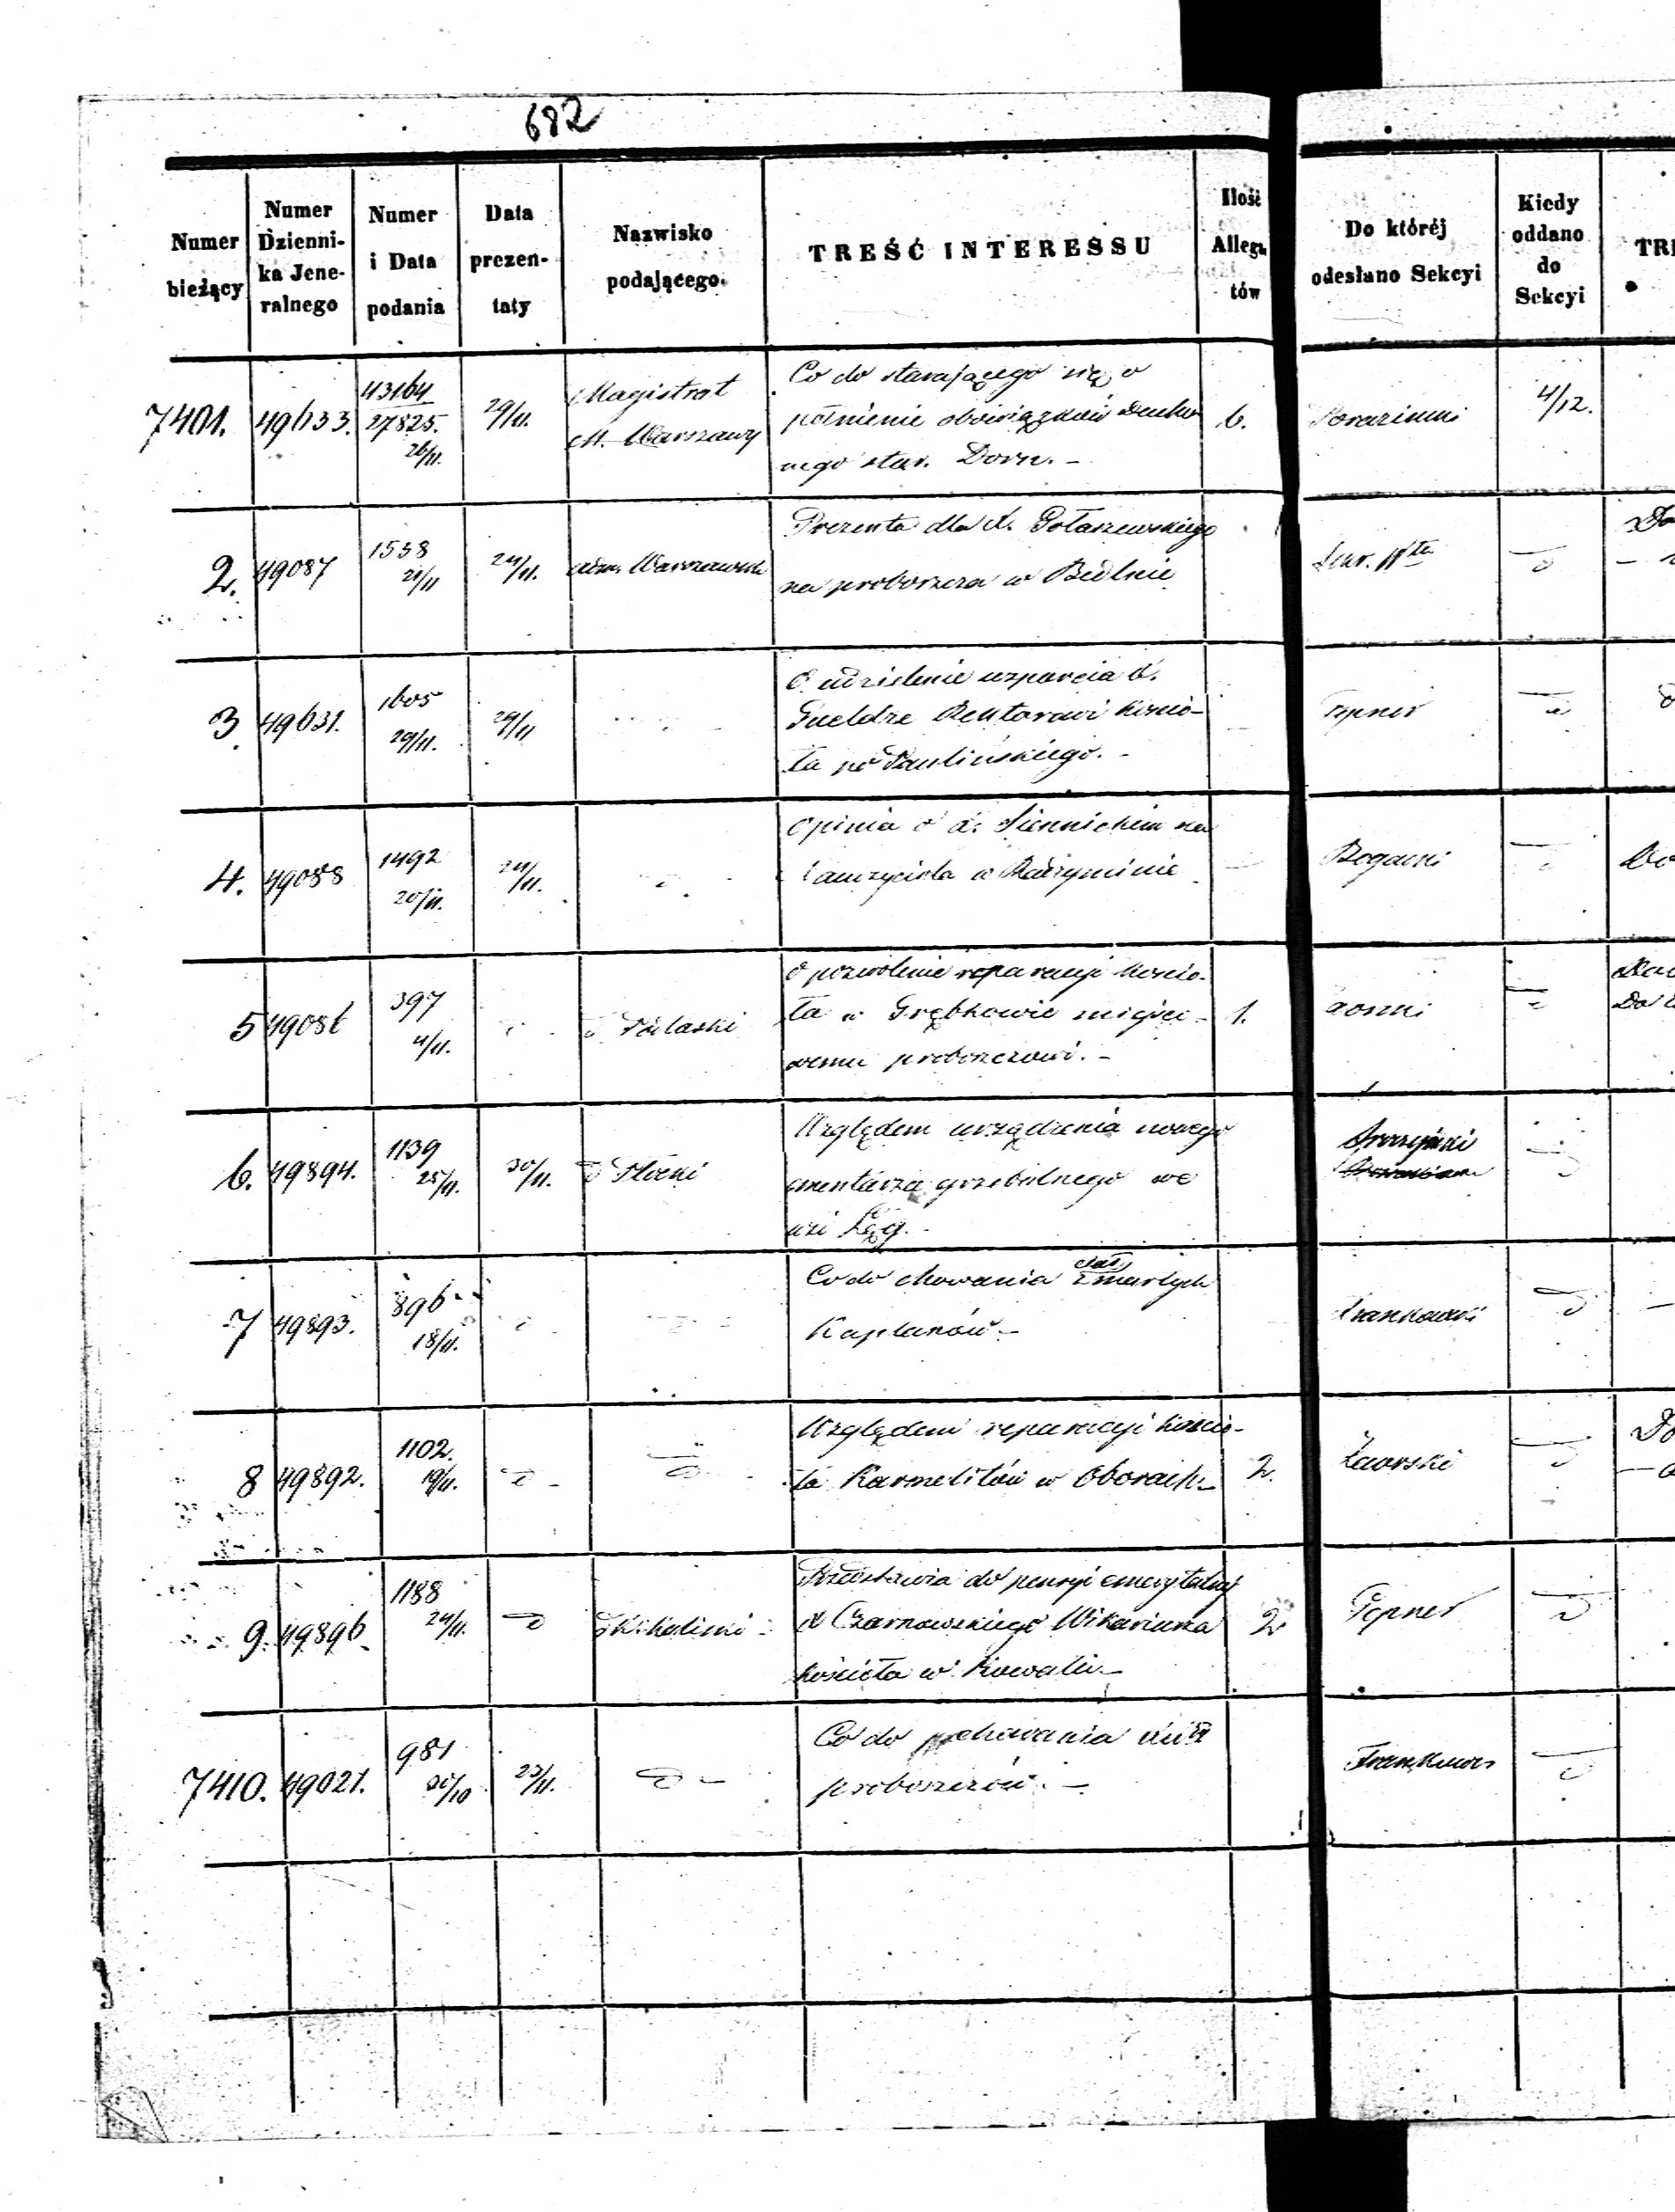 682
Numer bieżący
Numer Dzienni-
ka Jene-
ralnego
Numer i Data podania
Data prezen-
taty
Nazwisko podającego.
TREŚĆ INTERESSU
Ilość Allega-
tów
Do któréj odesłano Sekcyi
Kiedy oddano do Sekcyi
TRE
7401. 49633. 43164
27825.
26/11.
29/11.
Magistrat
M. Warszawy
Co do starającego się o
pełnienie obowiązków Ducho
nego star. Dorn. -
6.
4/12.
2. 49087 1558
21/11
24/11.
Adm. Warszawski
Prezenta dla X. Gołaszewskiego
na proboszcza w Bedlnie
3 49631. 1605
29/11.
29/11
O udzielenie wsparcia X.
Rektorowi kościo-
ła po Paulińskiego. -
Tepner
4. 49088 1492
20/11.
24/11.
Opinia o X. Siennickim na
w Radzyminie
Bogacki
5 49086 397
4/11.
Podlaski
o pozwolenie reparacyi kościo-
ła w Grębkowie miejsco-
wemu proboszczowi. -
1.
6. 49894. 1139
25/11.
30/11.
Płocki
Względem urządzenia nowego
cmentarza grzebalnego we
wsi Łęg. -
7 49893. 896
18/11.
Co do chowania ciał zmarłych
Kapłanów. -
Frankowski
8 49892. 1102.
19/11.
Względem reparacyi kościo-
ła Karmelitów w Oborach. -
2.
Zaorski
9. 49896 1188
24/11.
Kaliski
Przedstawia do pensyi emerytalnej
X Czarnowskiego Wikariusza
kościoła w Kowalu. -
2
Tepner
7410. 49021. 981
30/10
23/11.
Co do chowania
proboszczów. -
Frankows